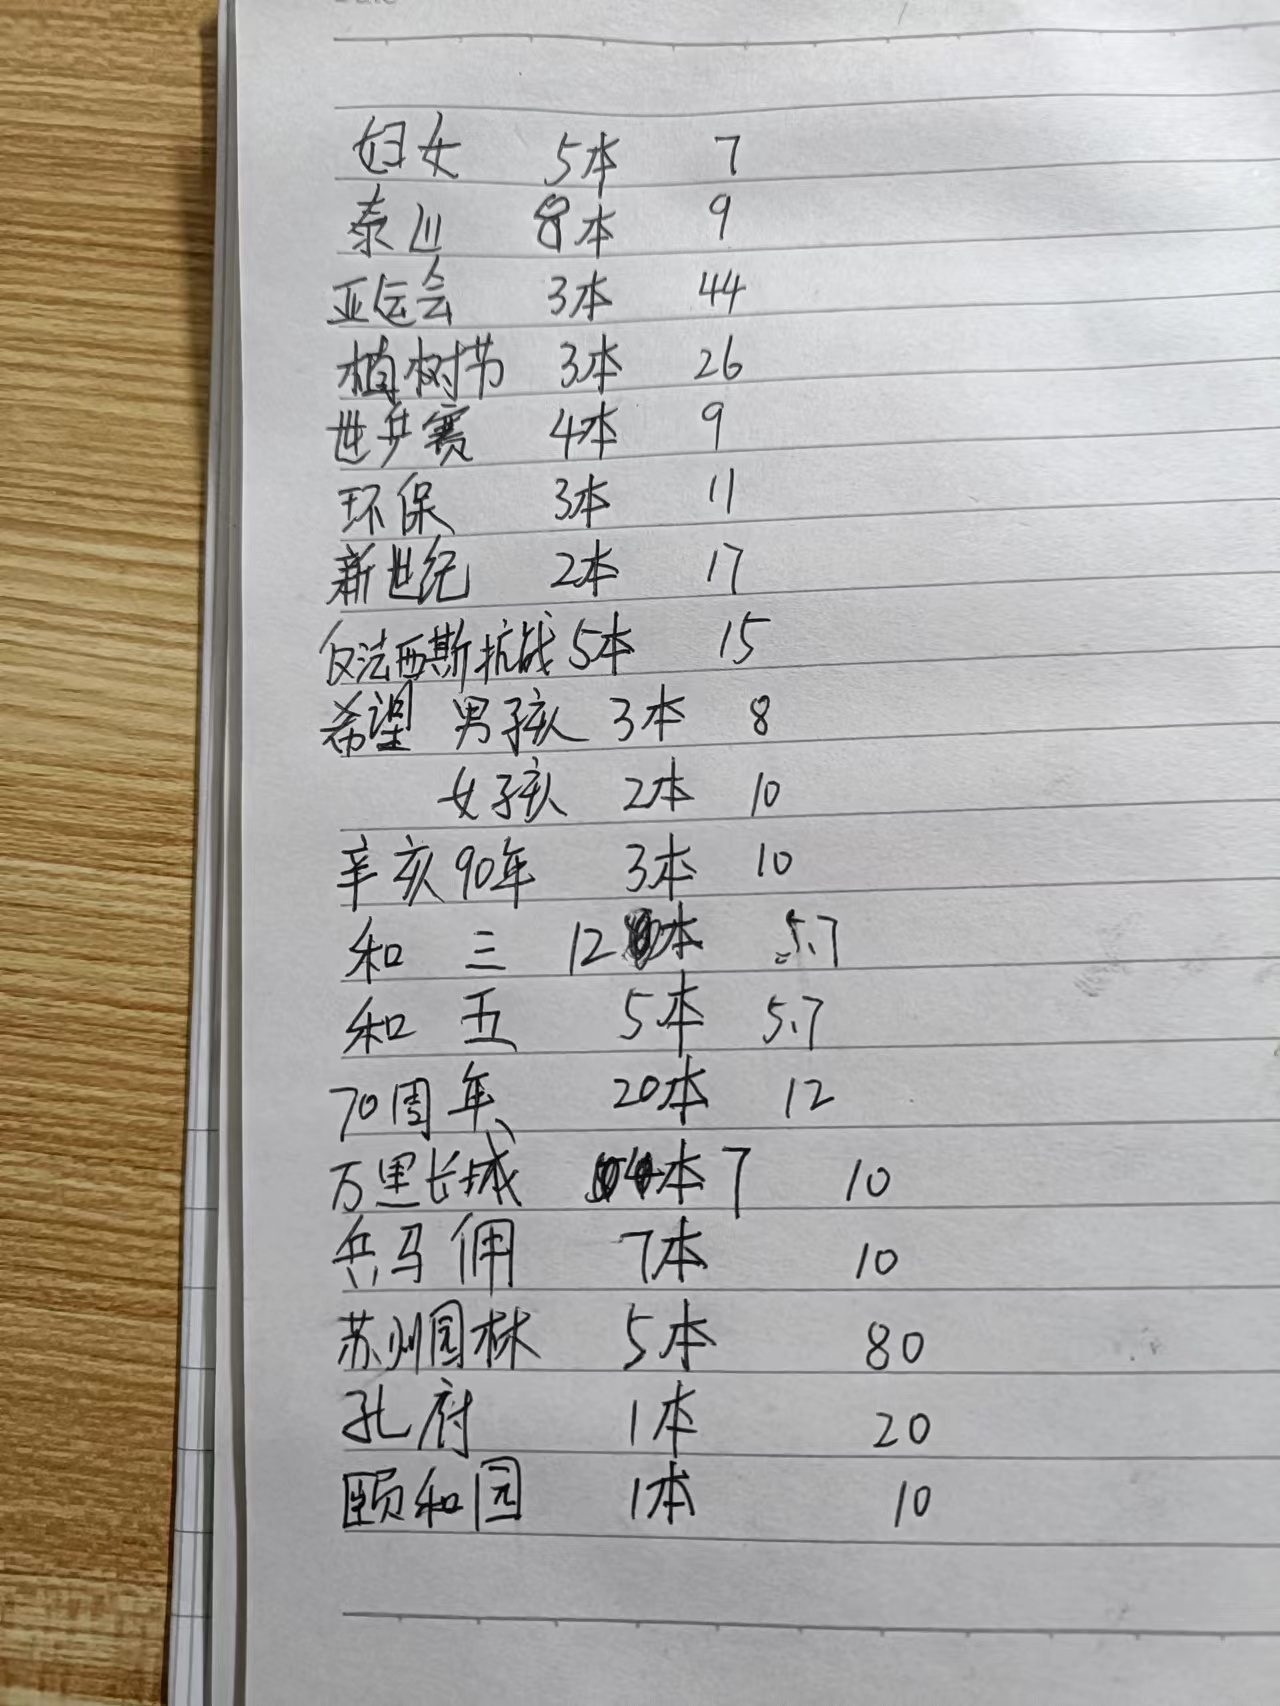 妇女 5本 7
泰山 8本 9
亚运会 3本 44
植树节 3本 26
世乒赛 4本 9
环保 3本 11
新世纪 2本 17
反法西斯抗战 5本 15
希望 男孩 3本 8
女孩 2本 10
辛亥90年 3本 10
和 三 12本 5.7
和 五 5本 5.7
70周年 20本 12
万里长城 本7 10
兵马俑 7本 10
苏州园林 5本 80
孔府 1本 20
颐和园 1本 10